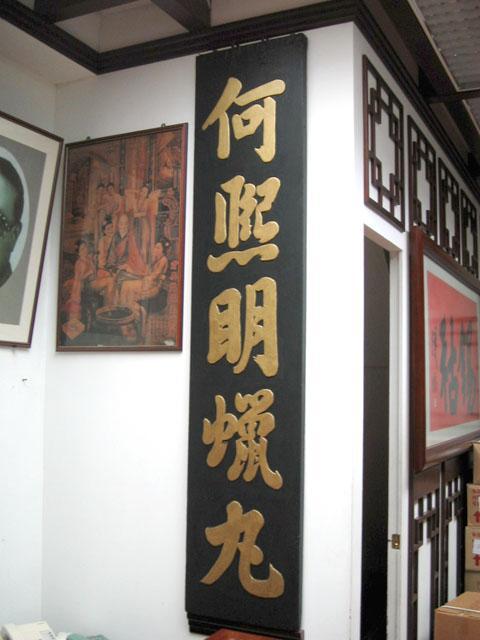 何熙明蠟丸